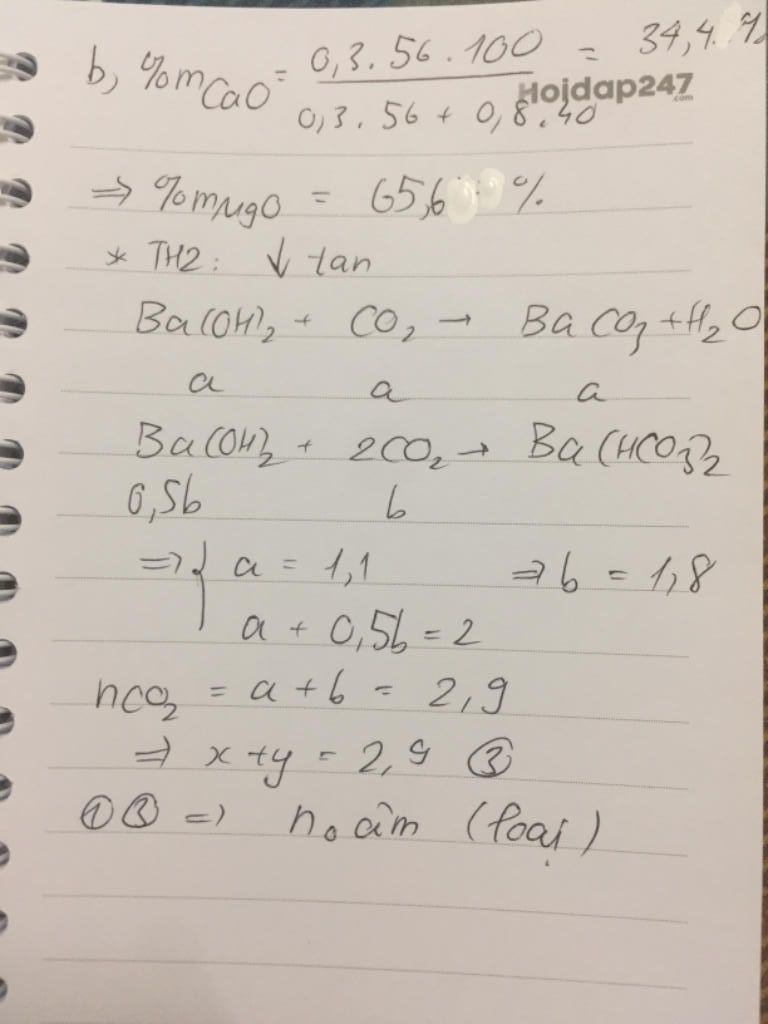 b, %mCaO = 0,3.56.100 / 0,3.56 + 0,8.40 = 34,4%
Hoidap247
.com
=> %mMgO = 65,6 %
* TH2: ↓ tan
Ba(OH)2 + CO2 → BaCO3 + H2O
a a a
Ba(OH)2 + 2CO2 → Ba(HCO3)2
0,5b b
=> { a = 1,1 => b = 1,8
a + 0,5b = 2
nCO2 = a + b = 2,9
=> x + y = 2,9 ③
①③ => no âm (loại)